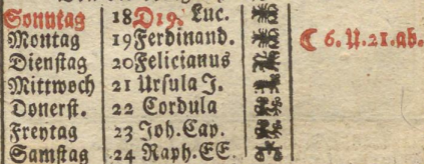 Sonntag 18 D19. Luc.
Montag 19 Ferdinand. ☾ 6. U. 21. ab.
Dienstag 20 Felicianus
Mittwoch 21 Ursula J.
Donerst. 22 Cordula
Freytag 23 Joh. Cap.
Samstag 24 Raph. EE.